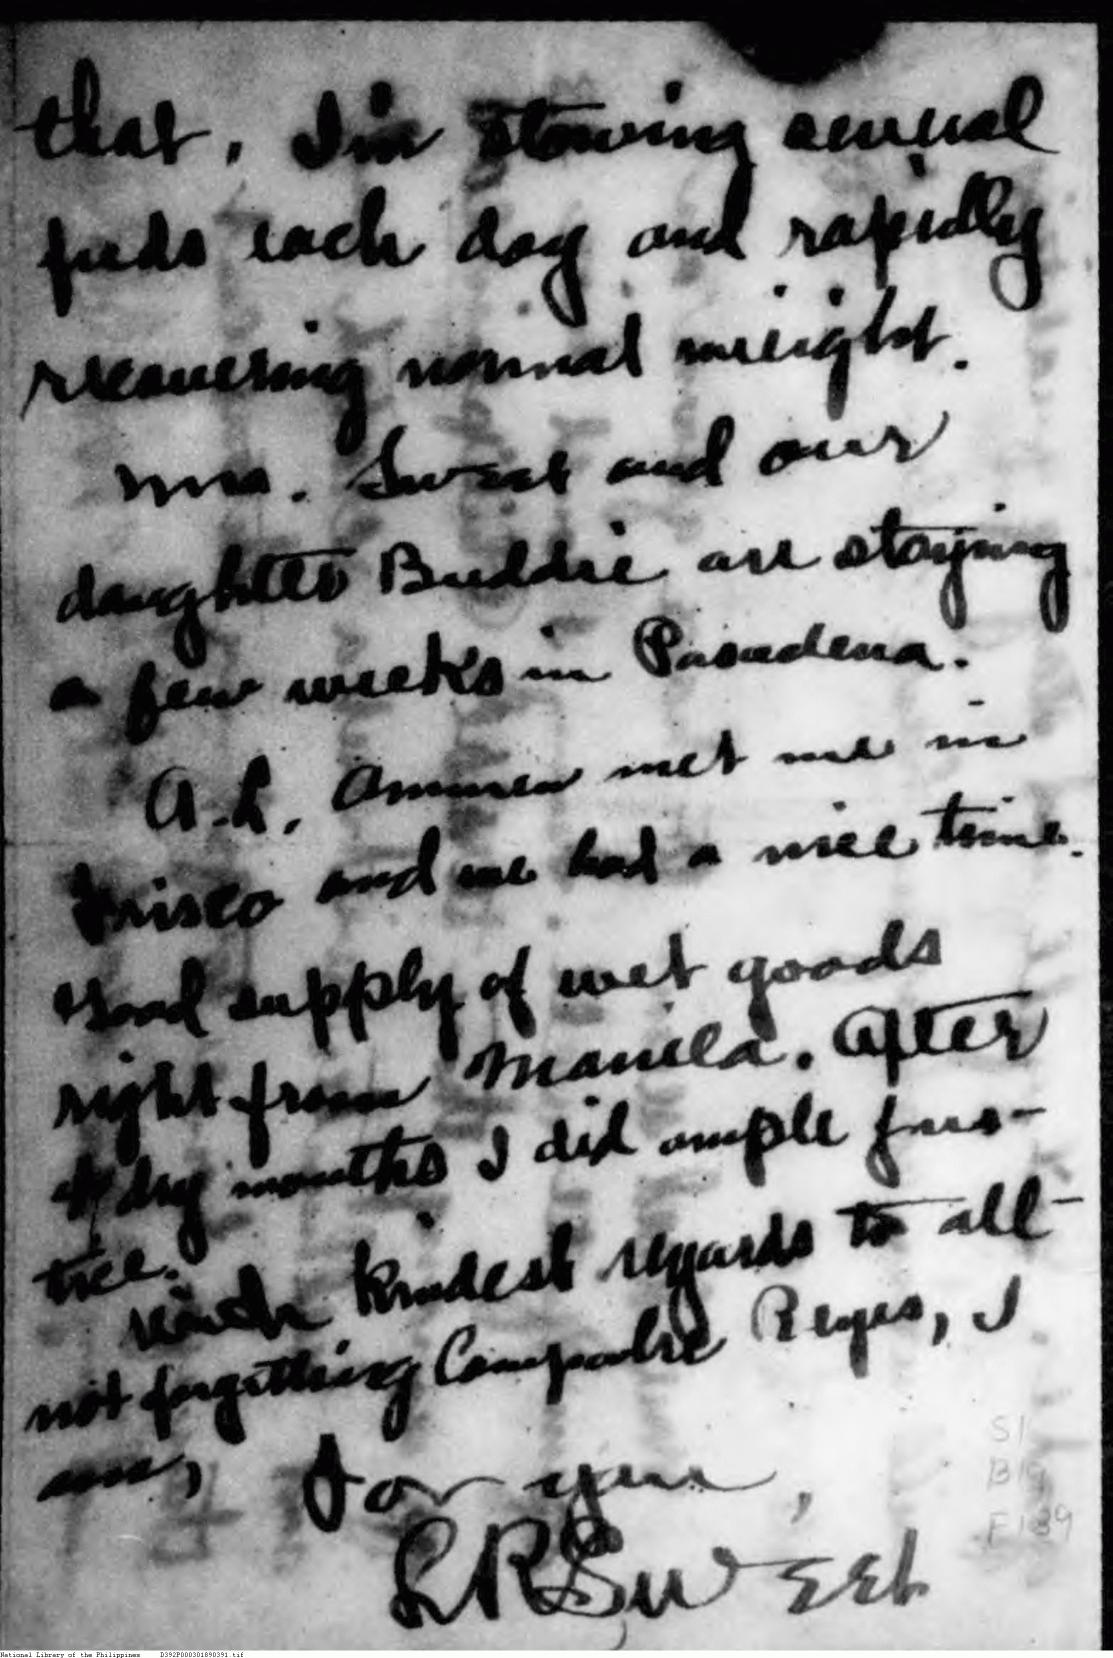 that, I'm stowing several
feeds each day and rapidly
recovering normal weight.
Mrs. Sweet and our
daughter Buddie are staying
a few weeks in Pasadena.
A.L. Ammen met me in
Frisco and we had a nice time.
Good supply of wet goods
right from Manila. After
dry months I did ample jus-
tice.
With kindest regards to all
not forgetting Compadre Reyes, I
am,
For you,
L R Sweet
S1
B19
F139
National Library of the Philippines D392P000301890391.tif